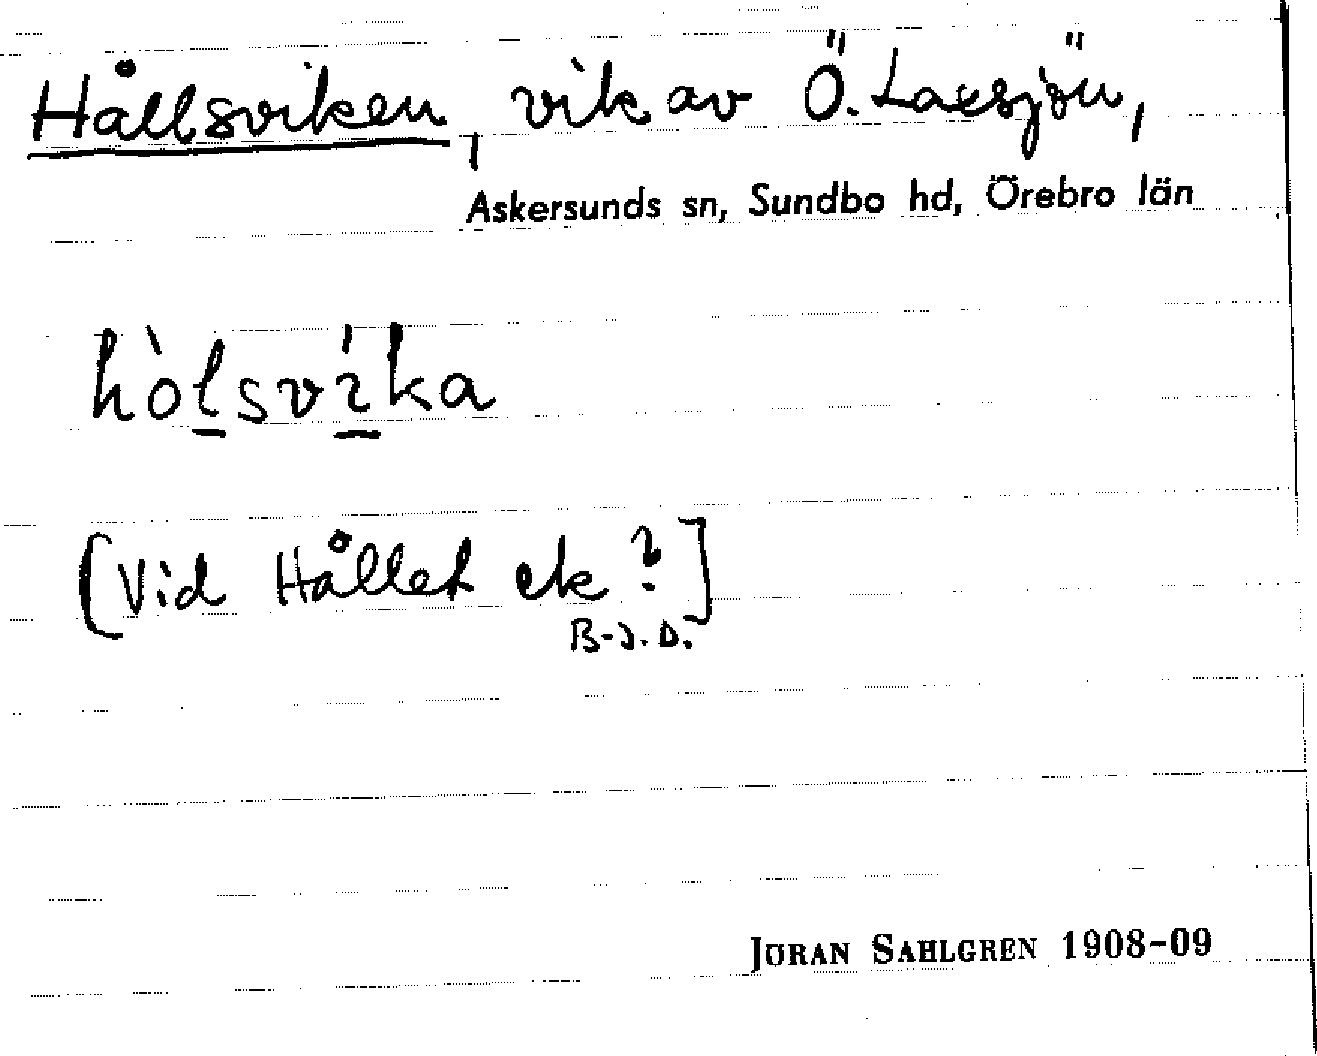 Hållsviken, vik av Ö. Laxsjön,
Askersunds sn, Sundbo hd, Örebro län
hòl̠sví̠ka
[Vid Hållet ek ?]
B-J. D.
JÖRAN SAHLGREN 1908-09